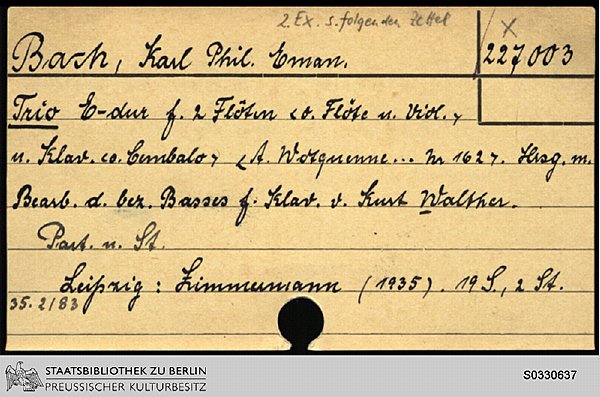 2. Ex. s. folgenden Zettel
X
Bach, Karl Phil. Eman.
227003
Trio E-dur f. 2 Flöten <o. Flöte u. Viol.>
u. Klav. <o. Cembalo> <A. Wotquenne... Nr 162>. Hrsg. m.
Bearb. d. bez. Basses f. Klav. v. Kurt Walther.
Part. u. St.
Leipzig: Zimmermann (1935). 19 S., 2 St.
35. 2183
STAATSBIBLIOTHEK ZU BERLIN
PREUSSISCHER KULTURBESITZ
S0330637